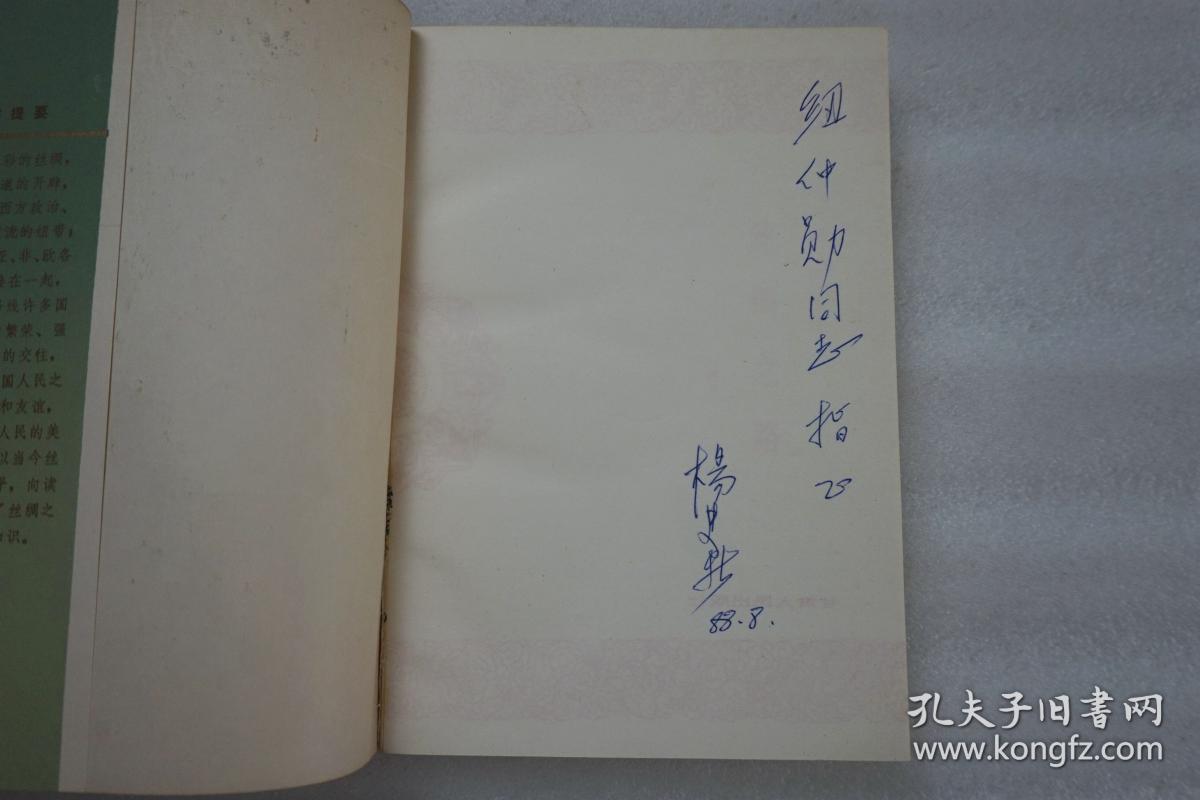 提要
彩的丝绸，
道的开辟，
西方政治、
流的纽带；
亚、非、欧各
在一起，
线许多国
繁荣、强
的交往，
国人民之
和友谊，
人民的美
以当今丝
向读
丝绸之
识。
纽仲勋同志 指正
楊
88.8.
孔夫子旧书网
www.kongfz.com